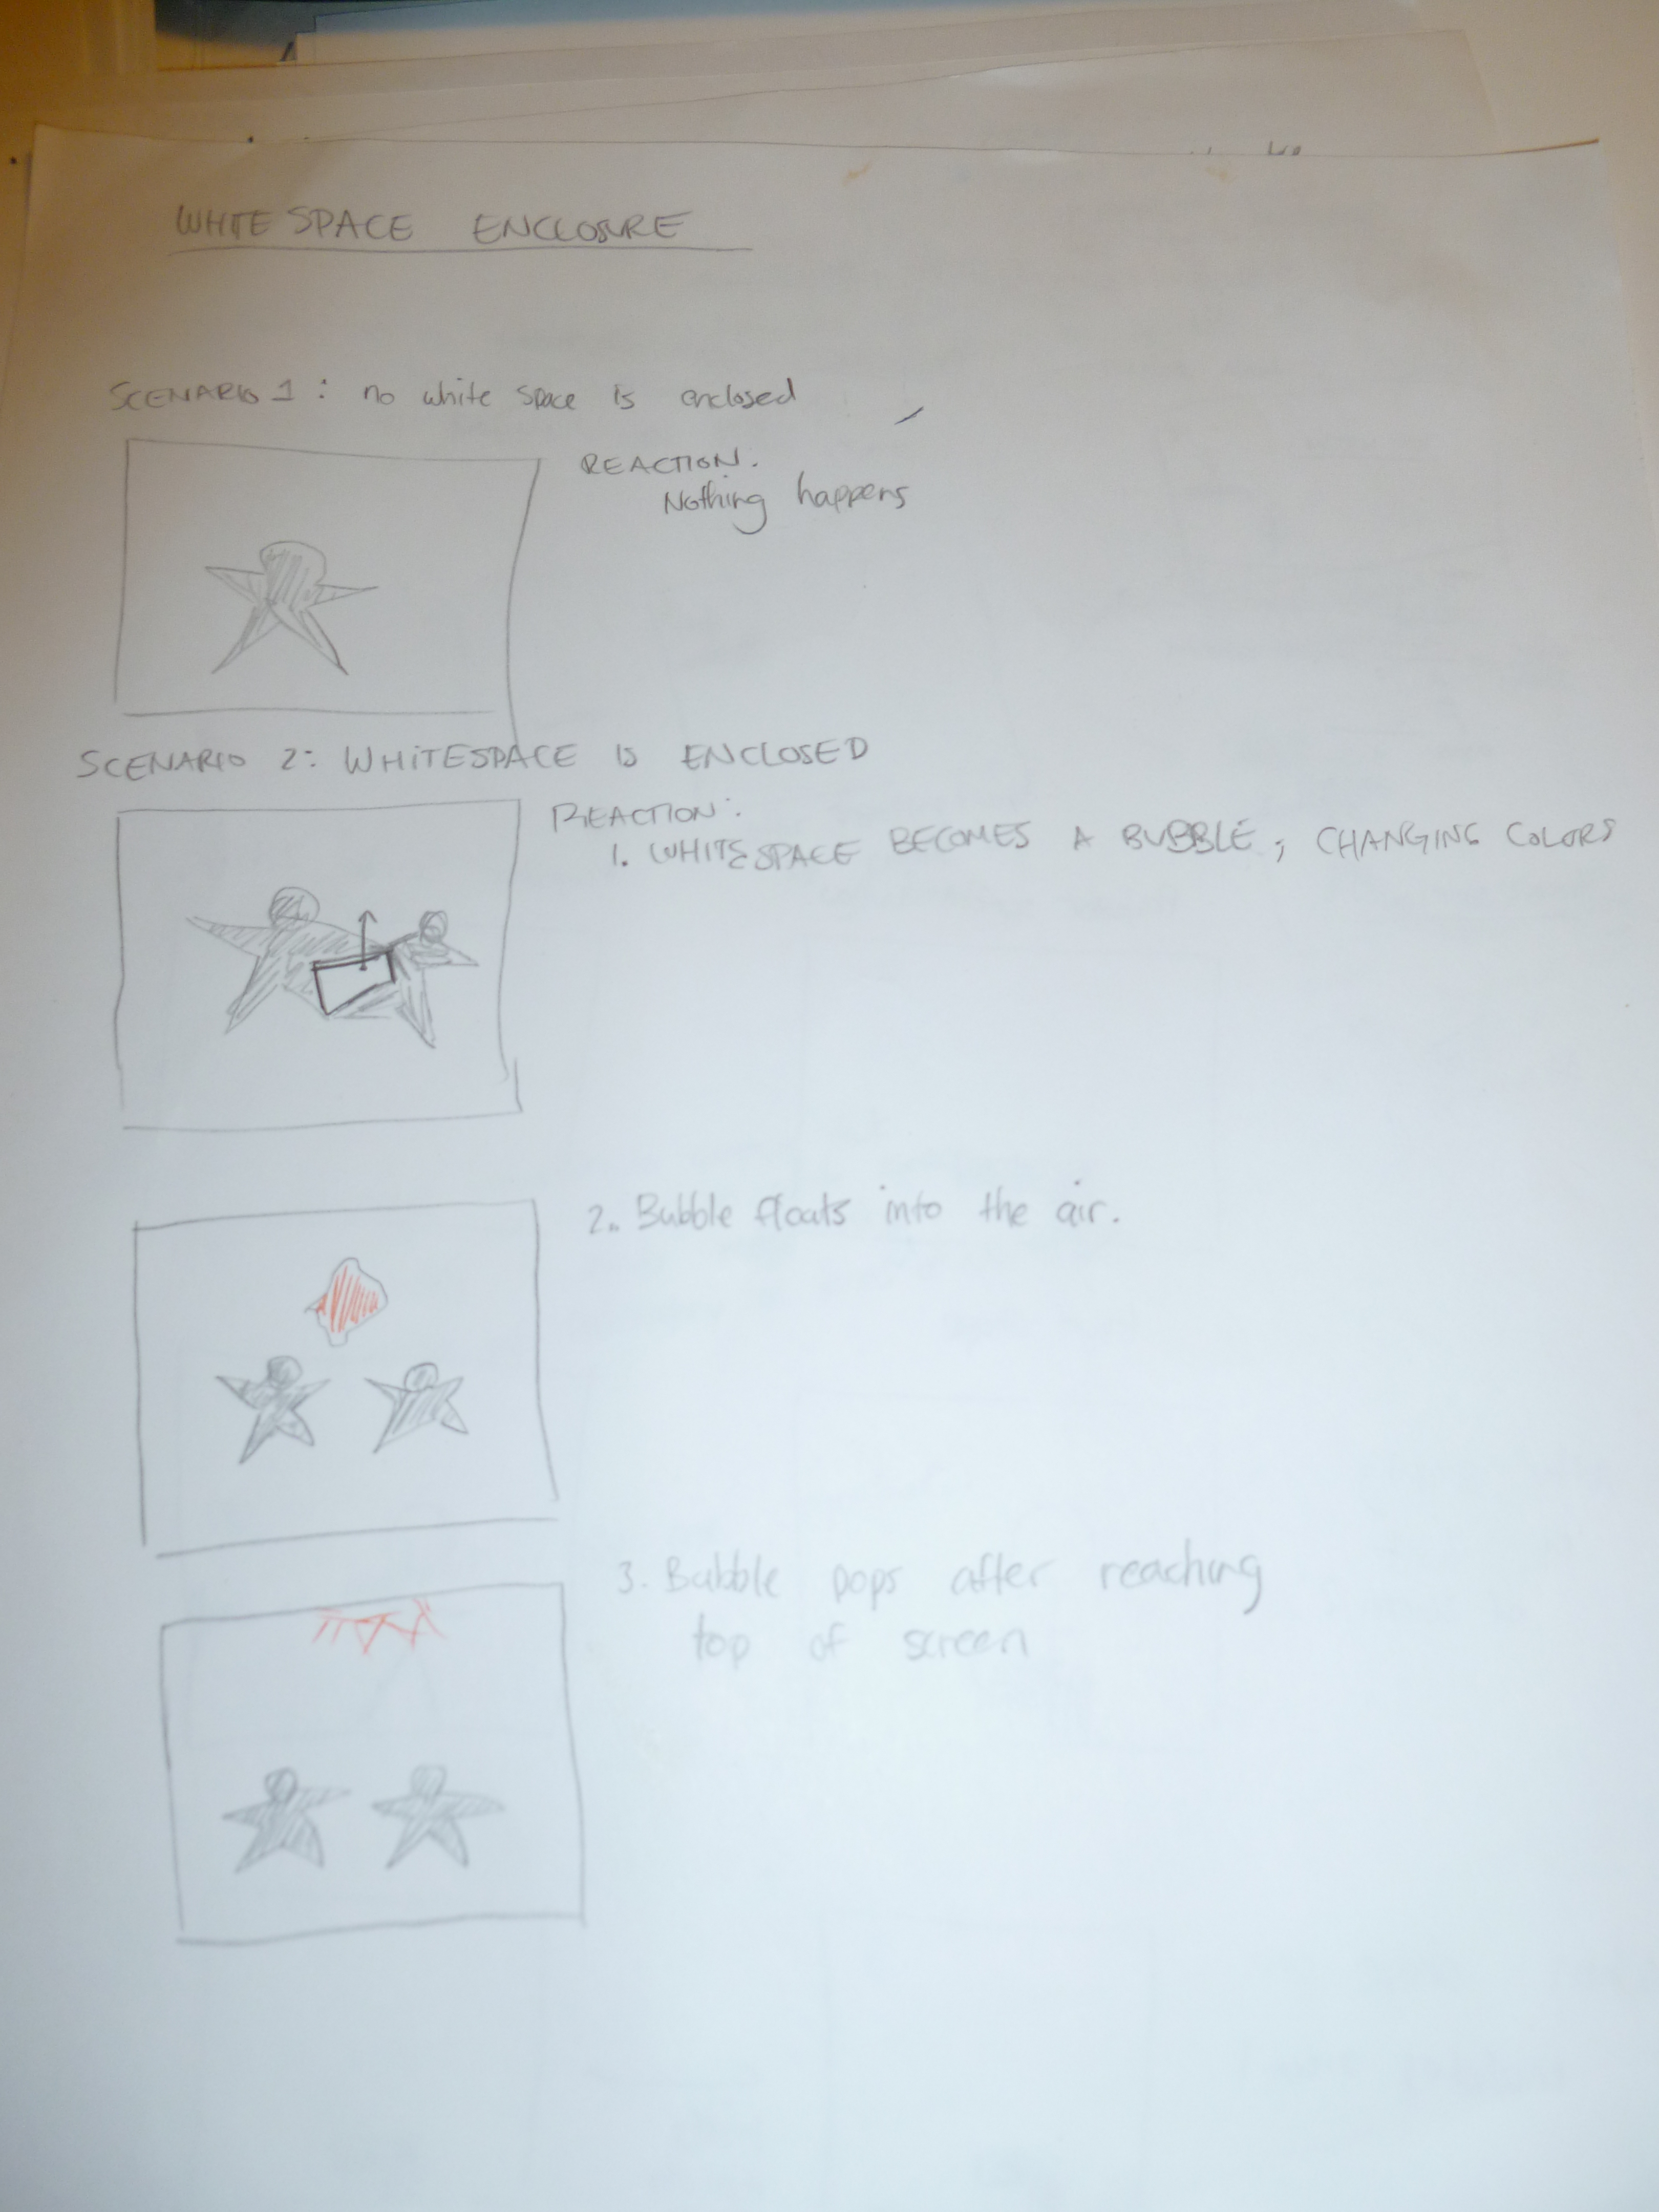 WHITE SPACE ENCLOSURE
SCENARIO 1: no white space is enclosed
REACTION.
Nothing happens
SCENARIO 2: WHITESPACE IS ENCLOSED
REACTION:
1. WHITESPACE BECOMES A BUBBLE; CHANGING COLORS
2. Bubble floats into the air.
3. Bubble pops after reaching
top of screen